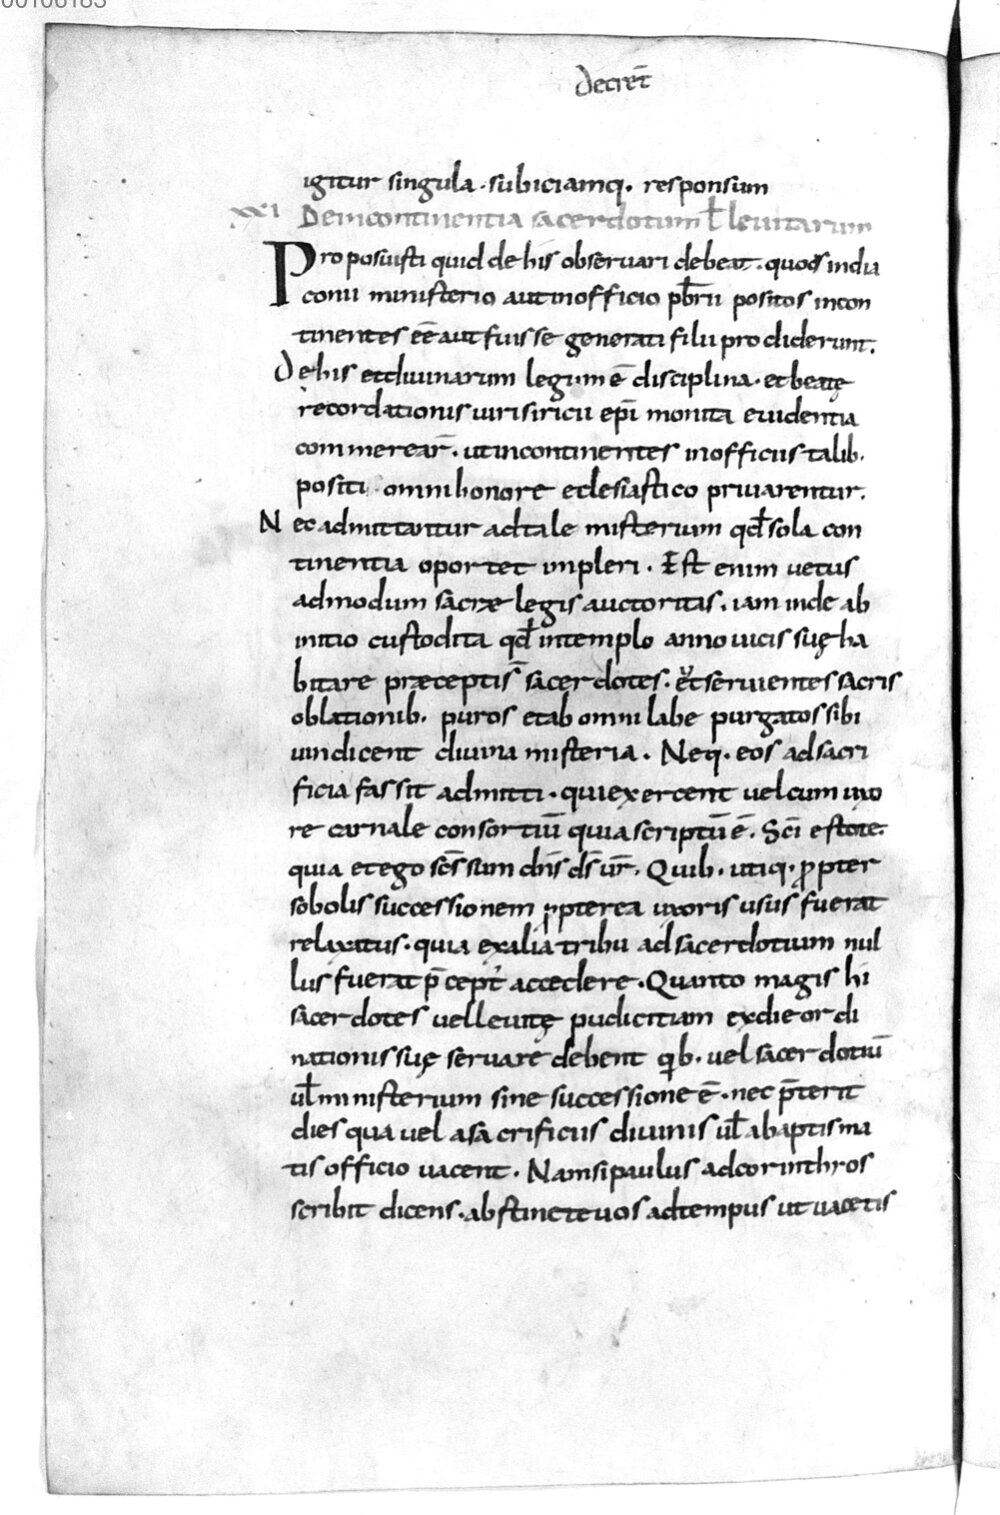 00106183
decret̄
igitur singula. subiciamq. responsum
xxi De incontinentia sacerdotum ł leuitarum
Proposuisti quid de his obseruari debeat. quos in dia
conii ministerio aut in officio pb̄rii positos incon
tinentes ēē aut fuisse generati filii prodiderunt.
De his et diuinarum legum ē disciplina. et beatę
recordationis uiri siricii epī monita euidentia
commerear̄. ut incontinentes in officiis talib.
positi omni honore eclesiastico priuarentur.
Nec admittantur ad tale misterium qđ sola con
tinentia oportet impleri. Est enim uetus
admodum sacræ legis auctoritas. iam inde ab
initio custodita qđ in templo anno uicis suę ha
bitare præceptis̄ sacerdotes. et seruientes sacris
oblationib. puros et ab omni labe purgatos sibi
uindicent diuina misteria. Neq. eos ad sacri
ficia fas sit admitti. qui exercent uel cum uxo
re carnale consortiū quia scriptū ē. Sc̄i estote.
quia et ego sc̄s sum dn̄s ds̄ ur̄. Quib. utiq. ꝓpter
sobolis successionem ꝓpterea uxoris usus fuerat
relaxatus. quia ex alia tribu ad sacerdotium nul
lus fuerat p̄cept' accedere. Quanto magis hi
sacerdotes uel leuitę pudicitiam ex die ordi
nationis suę seruare debent qib. uel sacerdotiū
uł ministerium sine successione ē. nec p̄terit
dies qua uel a sacrificiis diuinis uł a baptisma
tis officio uacent. Nam si paulus ad corinthros
scribit dicens. abstinete uos ad tempus ut uacetis